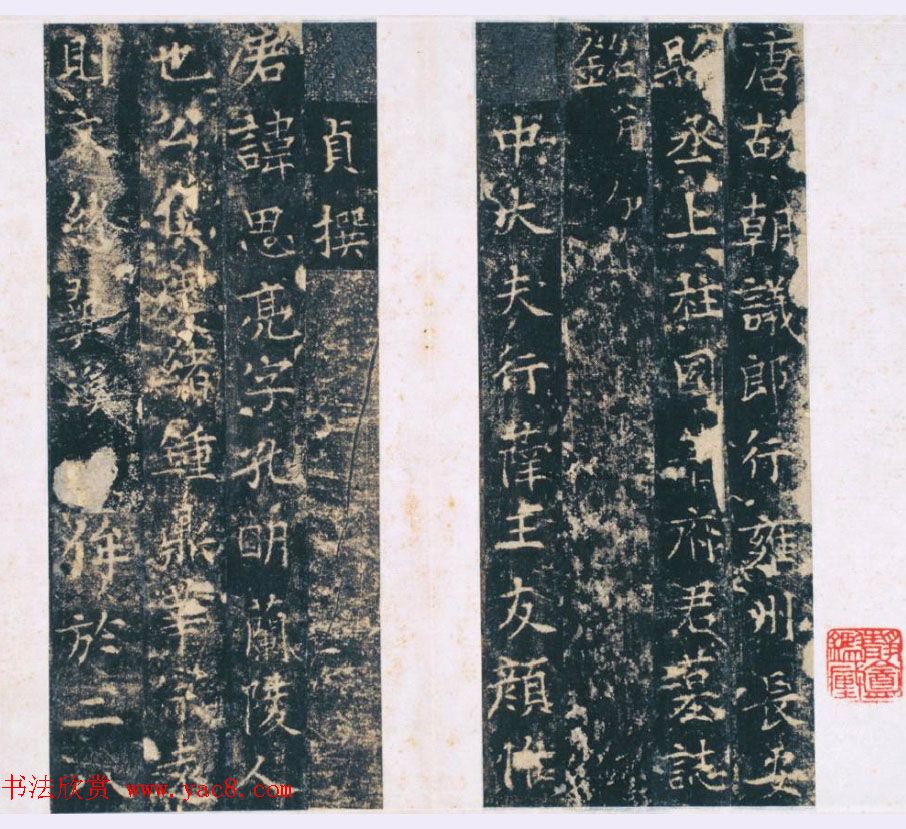 唐故朝議郎行雍州長安
縣丞上柱國府君墓誌
銘
中大夫行薛王友顏惟
貞撰
君諱思亮字孔明蘭陵人
也公侯緒鍾鼎華宗
則文終翼漢侔於二
书法欣赏 www.yac8.com